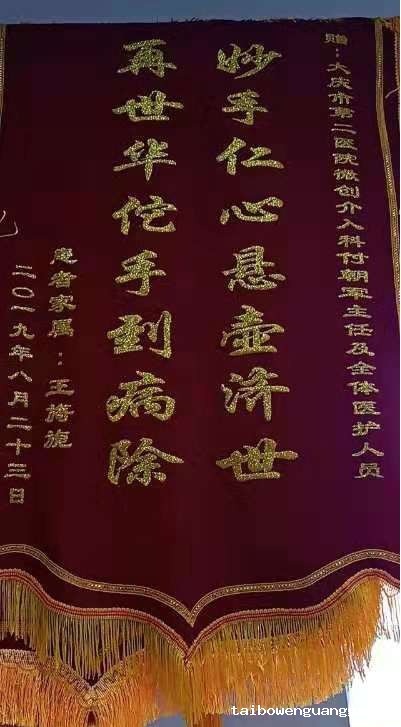 赠：大庆市第二医院微创介入科付朝军主任及全体医护人员
妙手仁心悬壶济世
再世华佗手到病除
患者家属：王榜旎
二〇一九年八月二十三日
taibowenguang